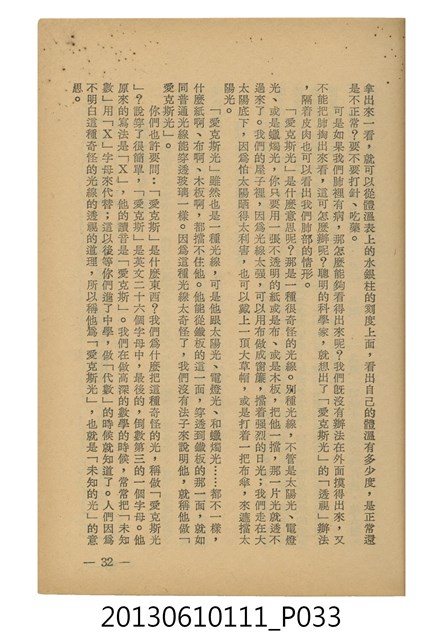 拿出來一看，就可以從體溫表上的水銀柱的刻度上面，看出自己的體溫有多少度，是正常還
是不正常？要不要打針、吃藥。
可是如果我們肺裡有病，那怎麼能夠看得出來呢？我們既沒有辦法在外面摸得出來，又
不能把肺掏出來看，這可怎麼辦呢？聰明的科學家，就想出了「愛克斯光」的「透視」辦法
，隔着皮肉也可以看出我們肺部的情形。
「愛克斯光」是什麼意思呢？那是一種很奇怪的光線。別種光線，不管是太陽光、電燈
光、或是蠟燭光，你只要用一張不透明的紙或是布、或是木板，把他一擋，那一片光就透不
過來了。我們的屋子裡，因爲光線太强，可以用布做成窗簾，擋着强烈的日光；我們走在大
太陽底下，因爲怕太陽晒得太利害，也可以戴上一頂大草帽，或是打着一把布傘，來遮擋太
陽光。
「愛克斯光」雖然也是一種光線，可是他跟太陽光、電燈光、和蠟燭光……都不一樣，
什麼紙啊、布啊、木板啊，都擋不住他。他能從鐵板的這一面，穿透到鐵板的那一面，就如
同普通光線能穿透玻璃一樣。因爲這種光線太奇怪了，我們沒有法子來說明他，就稱他做「
愛克斯光」。
你們也許要問：「愛克斯」是什麼東西？我們爲什麼把這種奇怪的光，稱做「愛克斯光
」？說穿了很簡單，「愛克斯」是英文二十六個字母中，最後的，倒數第三的一個字母。他
原來的寫法是「X」，他的讀音是「愛克斯」。我們在做高深的數學的時候，常常把「未知
數」用「X」字母來代替；這以後等你們進了中學，做「代數」的時候就知道了。人們因爲
不明白這種奇怪的光線的透視的道理，所以稱他爲「愛克斯光」，也就是「未知的光」的意
思。
— 32 —
20130610111_P033